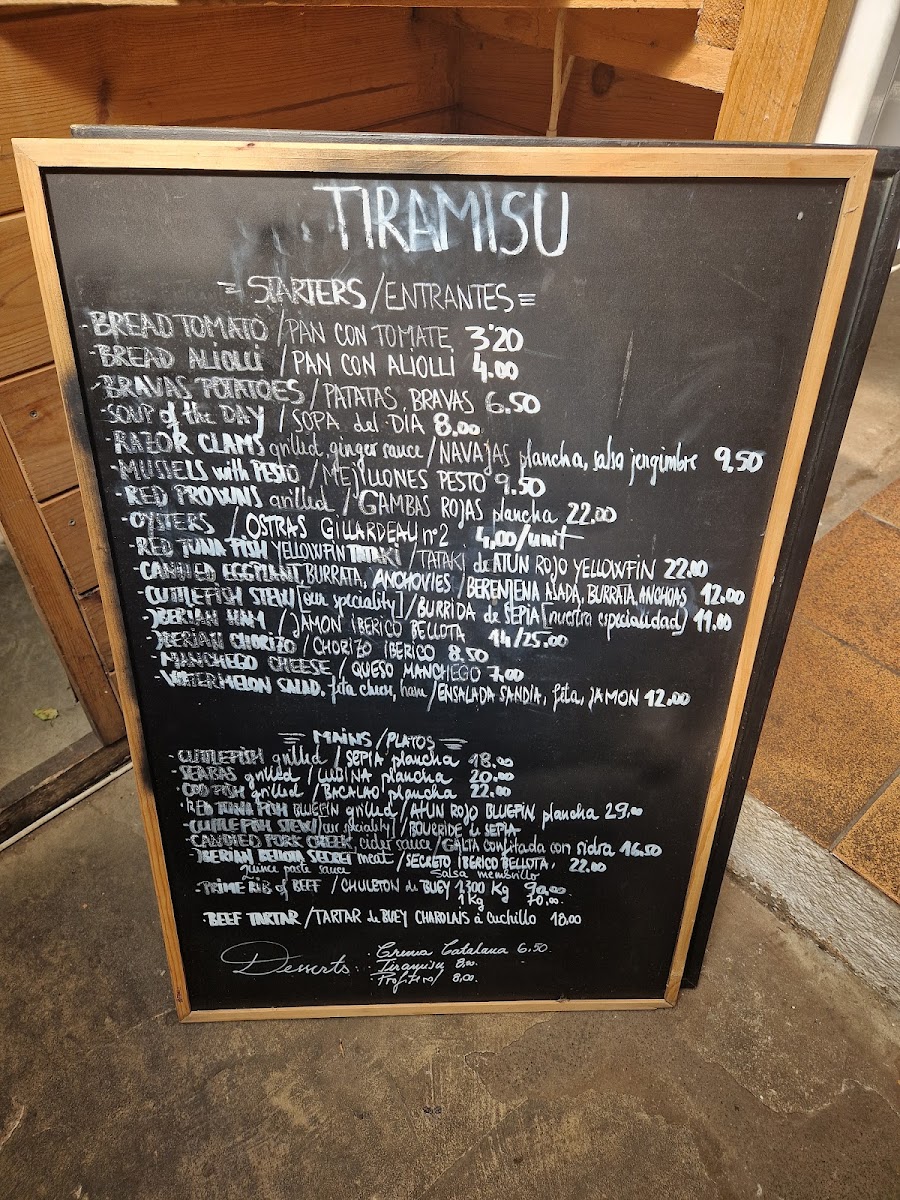 TIRAMISU
STARTERS/ENTRANTES
-BREAD TOMATO /PAN CON TOMATE 3'20
-BREAD ALIOLLI /PAN CON ALIOLLI 4.00
-BRAVAS POTATOES/PATATAS BRAVAS 6.50
-SOUP of the DAY /SOPA del DIA 8.00
-RAZOR CLAMS grilled, ginger sauce/NAVAJAS plancha, salsa jengimbre 9,50
-MUSSELS with PESTO /MEJILLONES PESTO 9.50
-RED PROWNS grilled /GAMBAS ROJAS plancha 22.00
-OYSTERS /OSTRAS GILLARDEAU nº2 4,00/unit
-RED TUNA FISH YELLOWFIN TATAKI /TATAKI de ATUN ROJO YELLOWFIN 22.00
-CANDIED EGGPLANT, BURRATA, ANCHOVIES /BERENJENA ASADA, BURRATA, ANCHOAS 12.00
-CUTTLEFISH STEW [our speciality]/BURRIDA de SEPIA [nuestra especialidad] 11.00
-IBERIAN HAM /JAMON IBERICO BELLOTA 14/25.00
-IBERIAN CHORIZO /CHORIZO IBERICO 8.50
-MANCHEGO CHEESE /QUESO MANCHEGO 7,00
-WATERMELON SALAD, feta cheese, ham/ENSALADA SANDIA, feta, JAMON 12.00
MAINS/PLATOS
-CUTTLEFISH grilled /SEPIA plancha 18.00
-SEABAS grilled /LUBINA plancha 20.00
-COD FISH grilled /BACALAO plancha 22.00
-RED TUNA FISH BLUEFIN grilled /ATUN ROJO BLUEFIN plancha 29.00
-CUTTLEFISH STEW [our speciality] /BOURRIDE de SEPIA
-CANDIED PORK CHEEK, cider sauce/GALTA confitada con sidra 16.50
-IBERIAN BELLOTA SECRET meat /SECRETO IBERICO BELLOTA, 22.00
Quince paste sauce salsa membrillo
-PRIME RIB of BEEF /CHULETON de BUEY 1300 Kg 90,00
1 Kg 70,00
-BEEF TARTAR /TARTAR de BUEY CHAROLAIS à cuchillo 18.00
Desserts: Crema Catalana 6.50
Tiramisu 8,00
8,00